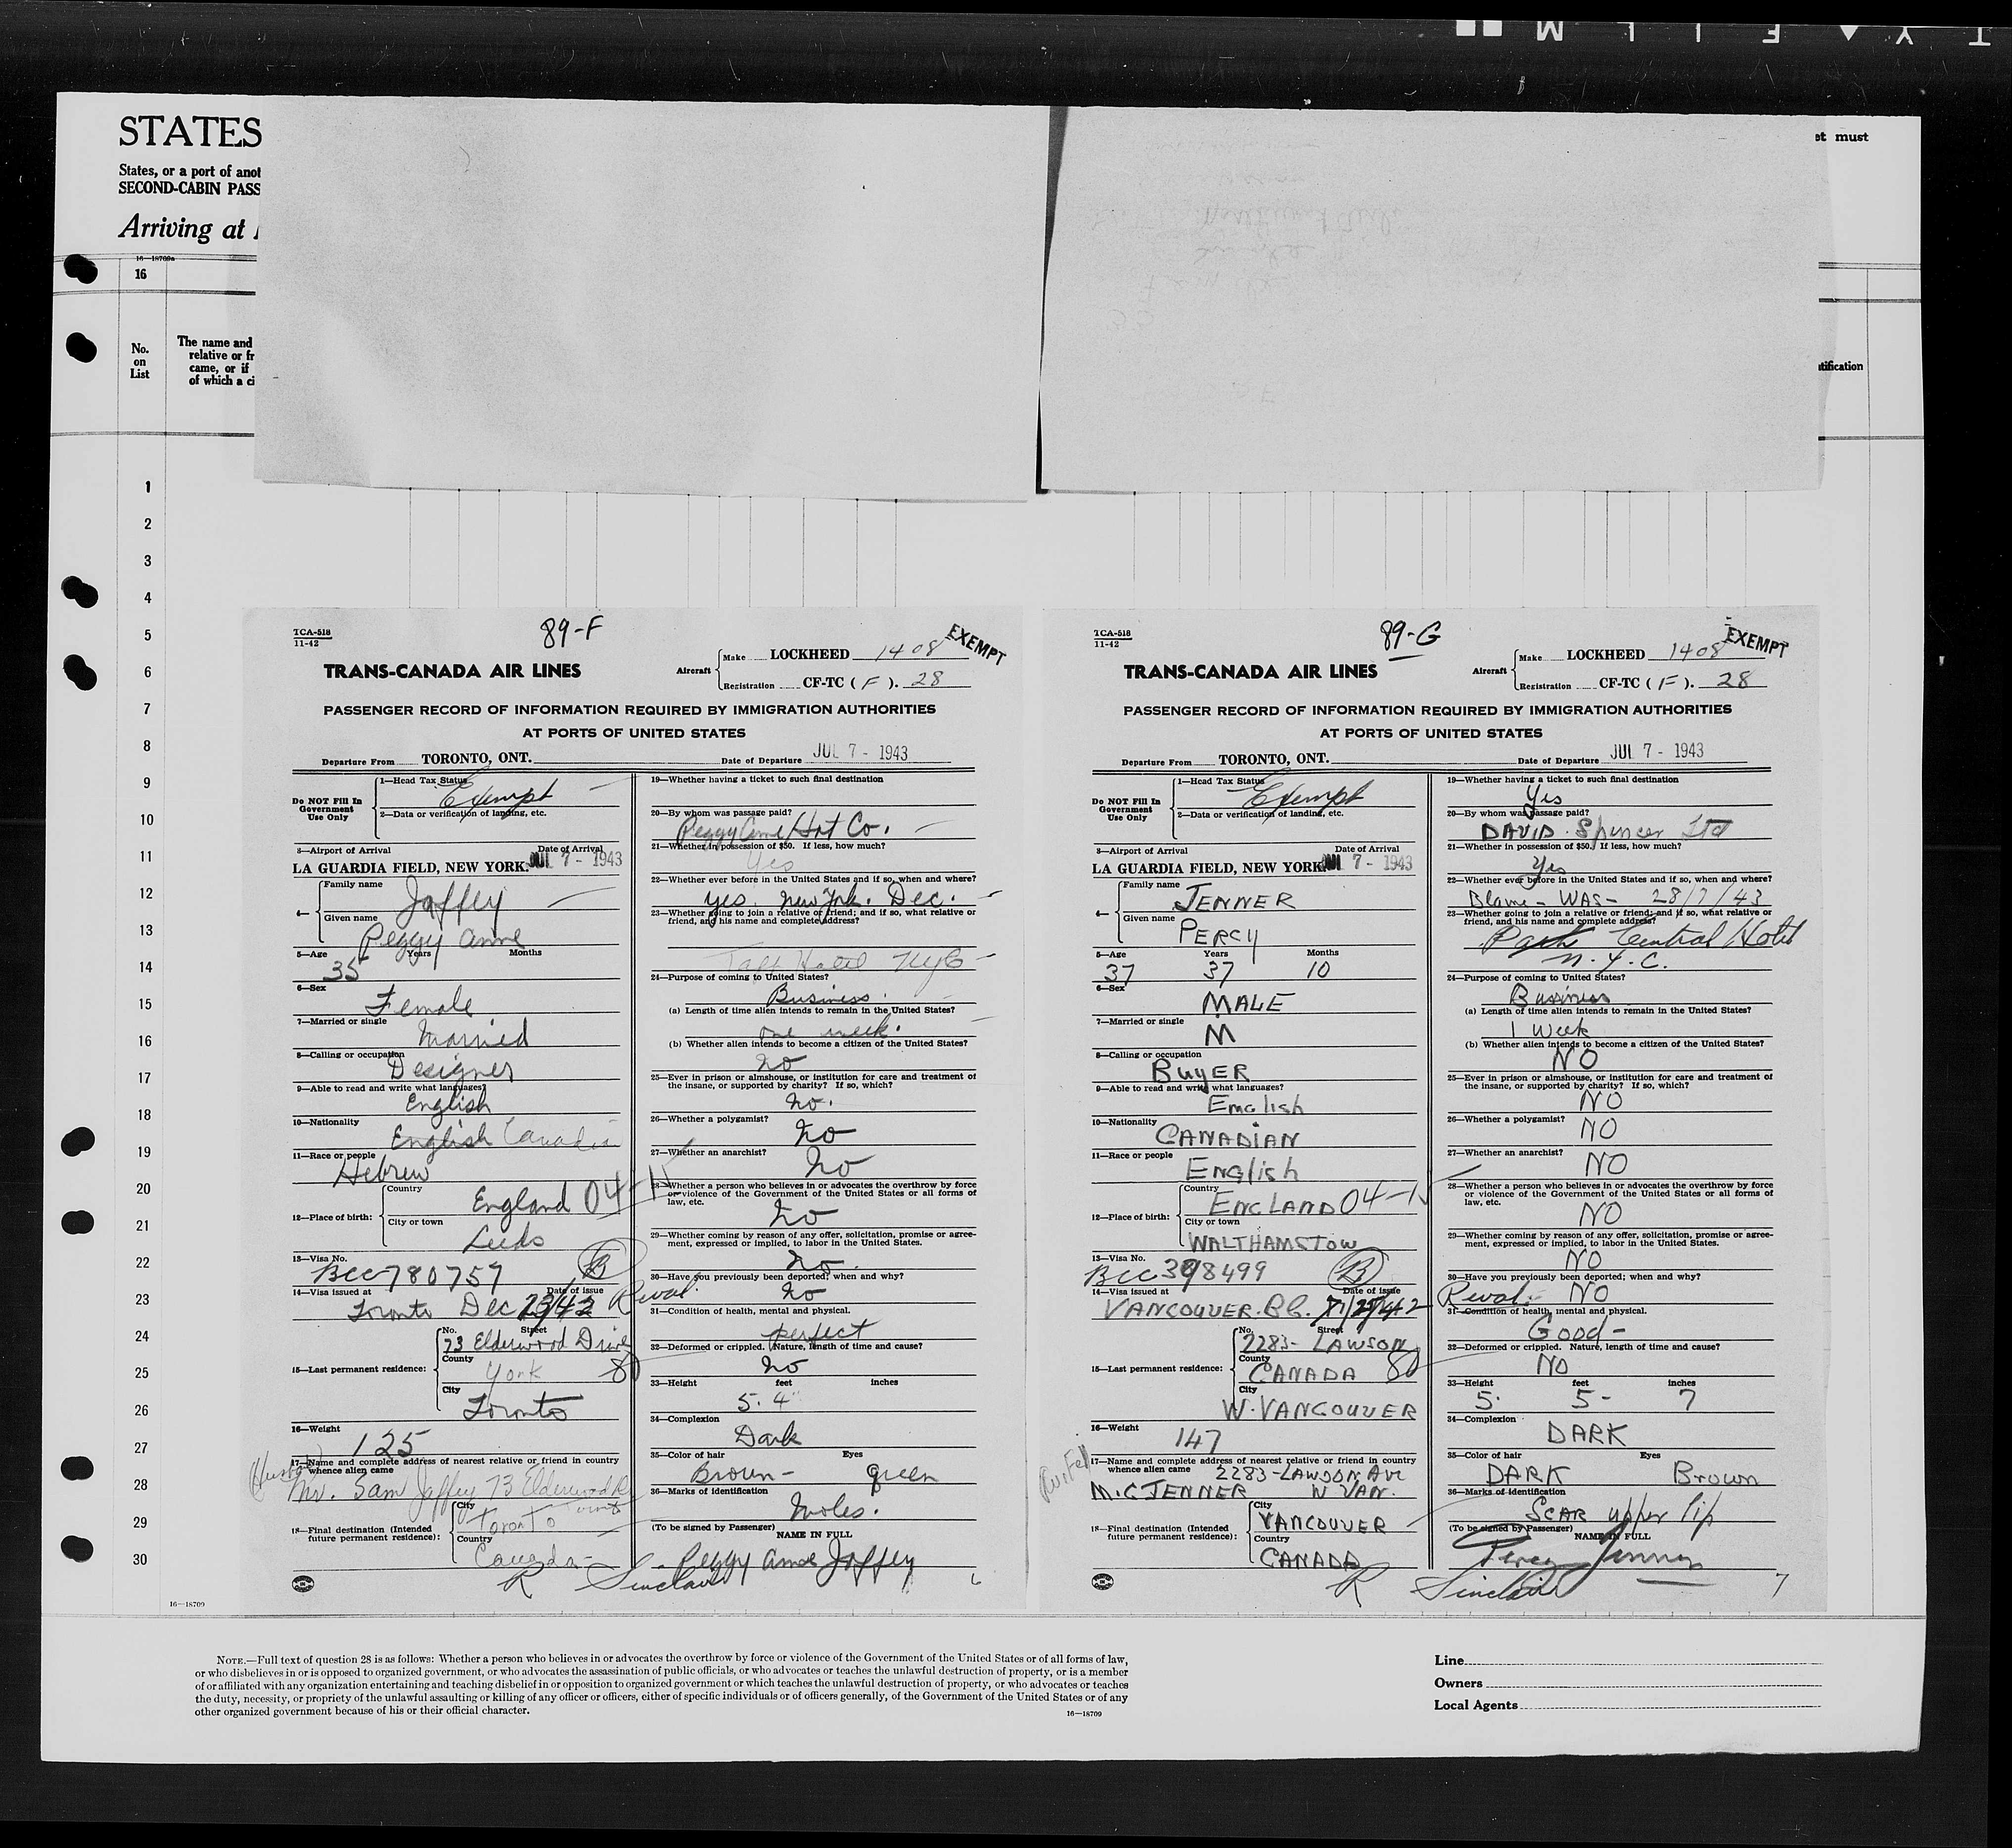 T Y ▲ F I L M
STATES
et must
States, or a port of anot
SECOND-CABIN PASS
Arriving at
16—18709a
16
No.
on
List
The name and
relative or fr
came, or if
of which a ci
tification
1
2
3
4
5
6
7
8
9
10
11
12
13
14
15
16
17
18
19
20
21
22
23
24
25
26
27
28
29
30
16—18709
TCA-518
11-42
89-F
EXEMPT
TRANS-CANADA AIR LINES
Aircraft
Make LOCKHEED 1408
Registration CF-TC (F). 28
PASSENGER RECORD OF INFORMATION REQUIRED BY IMMIGRATION AUTHORITIES
AT PORTS OF UNITED STATES
Departure From TORONTO, ONT. Date of Departure JUL 7 - 1943
Do NOT Fill In
Government
Use Only
1—Head Tax Status
Exempt
2—Data or verification of landing, etc.
3—Airport of Arrival Date of Arrival
LA GUARDIA FIELD, NEW YORK. JUL 7 - 1943
4—
Family name
Jaffey
Given name
Peggy Anne
5—Age Years Months
35
6—Sex
Female
7—Married or single
Married
8—Calling or occupation
Designer
9—Able to read and write what languages?
English
10—Nationality
English Canadian
11—Race or people
Hebrew
12—Place of birth:
Country
England 04-15
City or town
Leeds
13—Visa No.
BCC 780757 B
14—Visa issued at Date of issue
Toronto Dec 23/42 Reval.
15—Last permanent residence:
No. Street
73 Elderwood Drive
County
York 80
City
Toronto
16—Weight
125
17—Name and complete address of nearest relative or friend in country
whence alien came
(Husband)
Mr. Sam Jaffey 73 Elderwood Dr
Toronto
18—Final destination (Intended
future permanent residence):
City
Toronto
Country
Canada
19—Whether having a ticket to such final destination
20—By whom was passage paid?
Peggy Anne Hat Co.
21—Whether in possession of $50. If less, how much?
Yes
22—Whether ever before in the United States and if so, when and where?
yes. New York. Dec.
23—Whether going to join a relative or friend; and if so, what relative or
friend, and his name and complete address?
Taft Hotel NYC
24—Purpose of coming to United States?
Business.
(a) Length of time alien intends to remain in the United States?
one week.
(b) Whether alien intends to become a citizen of the United States?
no
25—Ever in prison or almshouse, or institution for care and treatment of
the insane, or supported by charity? If so, which?
no.
26—Whether a polygamist?
no
27—Whether an anarchist?
no
28—Whether a person who believes in or advocates the overthrow by force
or violence of the Government of the United States or all forms of
law, etc.
no
29—Whether coming by reason of any offer, solicitation, promise or agree-
ment, expressed or implied, to labor in the United States.
no.
30—Have you previously been deported; when and why?
no
31—Condition of health, mental and physical.
perfect
32—Deformed or crippled. Nature, length of time and cause?
no
33—Height feet inches
5. 4"
34—Complexion
Dark
35—Color of hair Eyes
Brown- green
36—Marks of identification
moles.
(To be signed by Passenger) NAME IN FULL
Peggy Anne Jaffey
R Sinclair 6
TCA-518
11-42
89-G
EXEMPT
TRANS-CANADA AIR LINES
Aircraft
Make LOCKHEED 1408
Registration CF-TC (F). 28
PASSENGER RECORD OF INFORMATION REQUIRED BY IMMIGRATION AUTHORITIES
AT PORTS OF UNITED STATES
Departure From TORONTO, ONT. Date of Departure JUL 7 - 1943
Do NOT Fill In
Government
Use Only
1—Head Tax Status
Exempt
2—Data or verification of landing, etc.
3—Airport of Arrival Date of Arrival
LA GUARDIA FIELD, NEW YORK. JUL 7 - 1943
4—
Family name
JENNER
Given name
PERCY
5—Age Years Months
37 37 10
6—Sex
MALE
7—Married or single
M
8—Calling or occupation
BUYER
9—Able to read and write what languages?
English
10—Nationality
CANADIAN
11—Race or people
English
12—Place of birth:
Country
ENGLAND 04-15
City or town
WALTHAMSTOW
13—Visa No.
BCC 398499 B
14—Visa issued at Date of issue
VANCOUVER. B.C. Reval.
15—Last permanent residence:
No. Street
2283- LAWSON
County
CANADA 80
City
W. VANCOUVER
16—Weight
147
17—Name and complete address of nearest relative or friend in country
whence alien came 2283-LAWSON Ave
(Wife)
M. C JENNER W VAN.
18—Final destination (Intended
future permanent residence):
City
VANCOUVER
Country
CANADA
19—Whether having a ticket to such final destination
Yes
20—By whom was passage paid?
DAVID Spencer Ltd
21—Whether in possession of $50. If less, how much?
Yes
22—Whether ever before in the United States and if so, when and where?
Blaine - WAS -
23—Whether going to join a relative or friend; and if so, what relative or
friend, and his name and complete address?
Park Central Hotel
N.Y.C.
24—Purpose of coming to United States?
Business
(a) Length of time alien intends to remain in the United States?
1 Week
(b) Whether alien intends to become a citizen of the United States?
NO
25—Ever in prison or almshouse, or institution for care and treatment of
the insane, or supported by charity? If so, which?
NO
26—Whether a polygamist?
NO
27—Whether an anarchist?
NO
28—Whether a person who believes in or advocates the overthrow by force
or violence of the Government of the United States or all forms of
law, etc.
NO
29—Whether coming by reason of any offer, solicitation, promise or agree-
ment, expressed or implied, to labor in the United States.
NO
30—Have you previously been deported; when and why?
NO
31—Condition of health, mental and physical.
Good-
32—Deformed or crippled. Nature, length of time and cause?
NO
33—Height feet inches
5. 5- 7
34—Complexion
DARK
35—Color of hair Eyes
DARK Brown
36—Marks of identification
SCAR upper lip
(To be signed by Passenger) NAME IN FULL
Percy Jenner
R Sinclair 7
NOTE.—Full text of question 28 is as follows: Whether a person who believes in or advocates the overthrow by force or violence of the Government of the United States or of all forms of law,
or who disbelieves in or is opposed to organized government, or who advocates the assassination of public officials, or who advocates or teaches the unlawful destruction of property, or is a member
of or affiliated with any organization entertaining and teaching disbelief in or opposition to organized government or which teaches the unlawful destruction of property, or who advocates or teaches
the duty, necessity, or propriety of the unlawful assaulting or killing of any officer or officers, either of specific individuals or of officers generally, of the Government of the United States or of any
other organized government because of his or their official character.
16—18709
Line
Owners
Local Agents